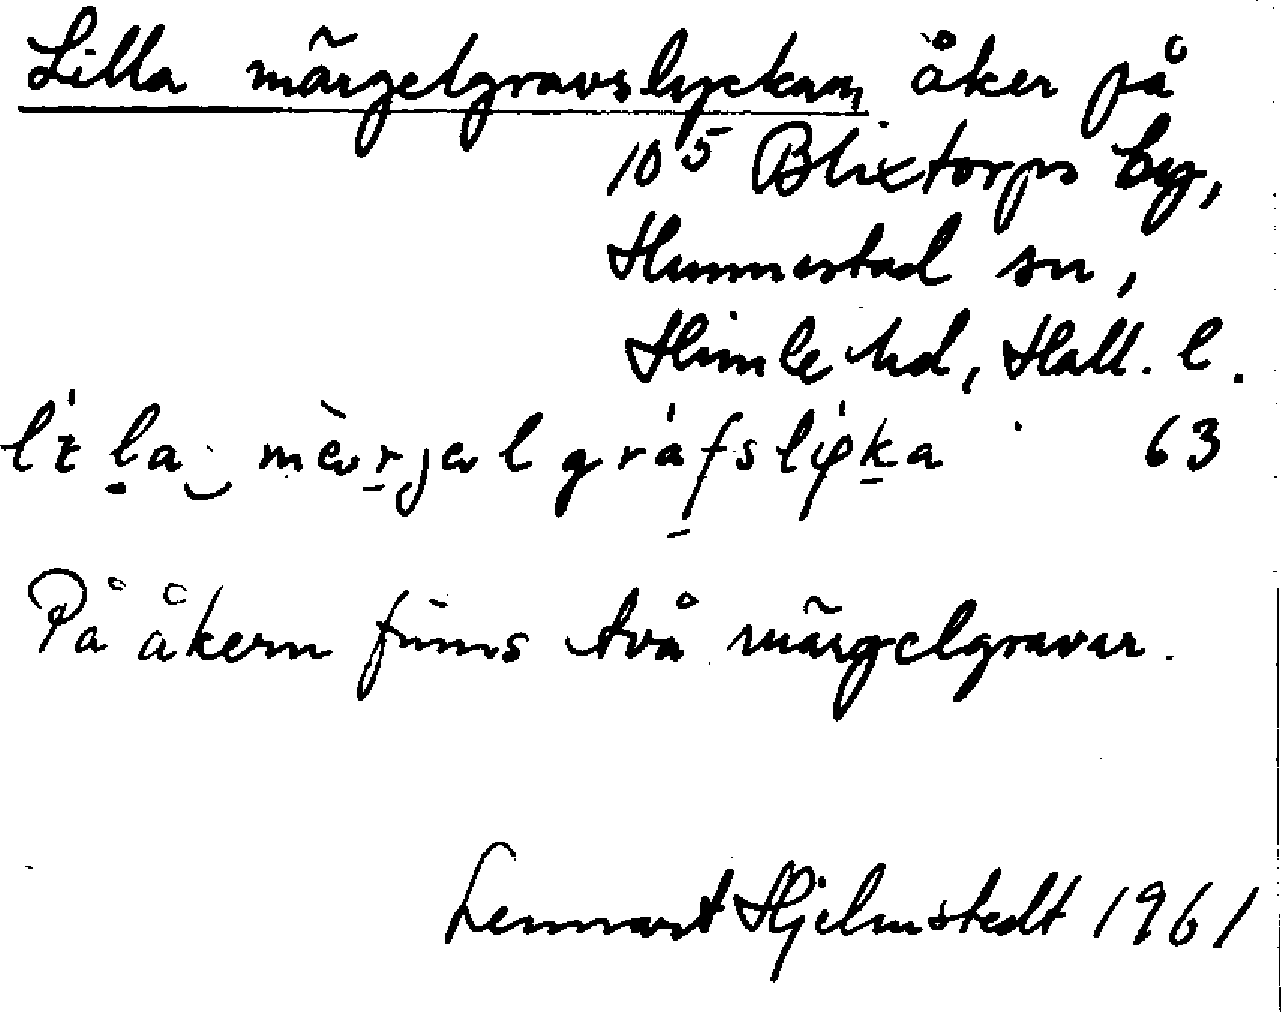 Lilla märgelgravslyckan, åker på
10⁵ Blixtorps by,
Hunnestad sn,
Himle hd, Hall. l.
63
På åkern finns två märgelgravar.
Lennart Hjelmstedt 1961